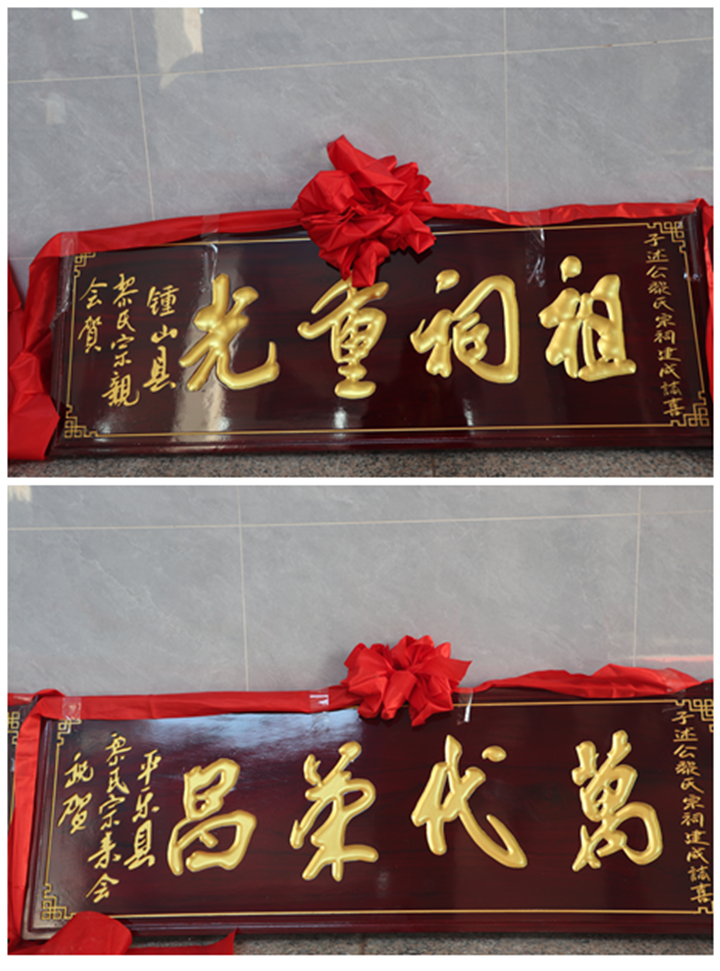 子述公黎氏宗祠建成誌喜
祖祠重光
鍾山县
黎氏宗親
会賀
子述公黎氏宗祠建成誌喜
萬代荣昌
平乐县
黎氏宗亲会
祝賀